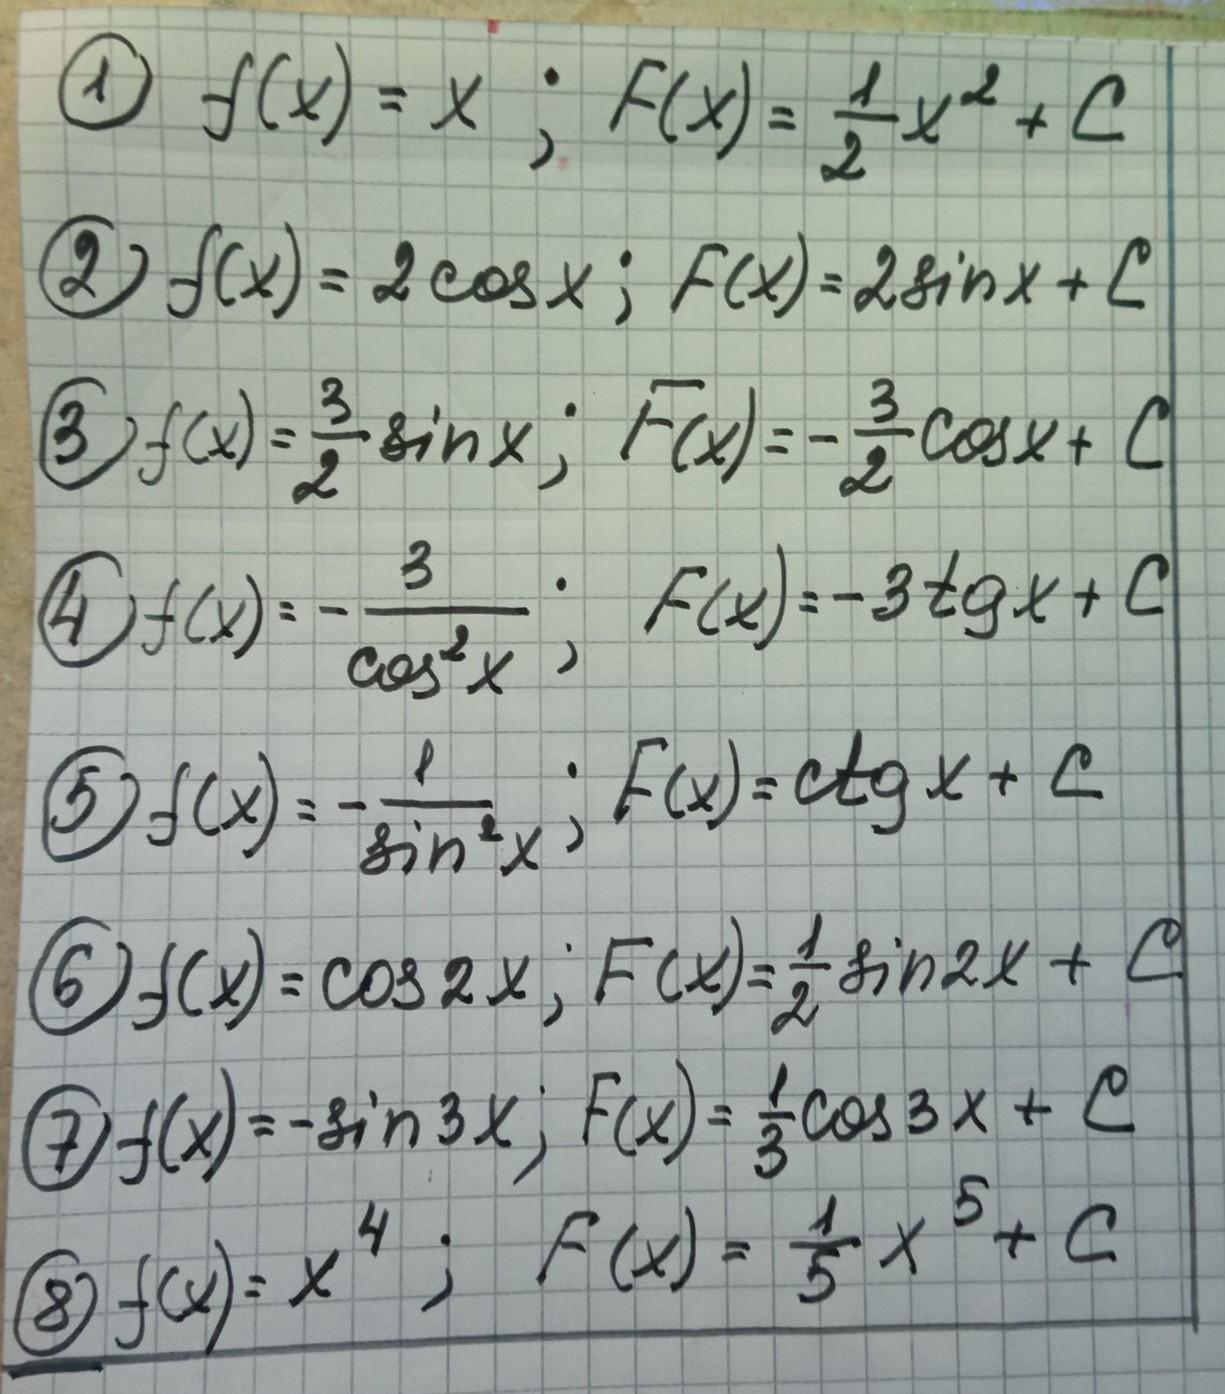 ① f(x) = x ; F(x) = 1/2 x² + C
② f(x) = 2cosx ; F(x) = 2sinx + C
③ f(x) = 3/2 sinx ; F(x) = -3/2 cosx + C
④ f(x) = - 3/cos²x ; F(x) = -3tgx + C
⑤ f(x) = - 1/sin²x ; F(x) = ctgx + C
⑥ f(x) = cos2x ; F(x) = 1/2 sin2x + C
⑦ f(x) = -sin3x ; F(x) = 1/3 cos3x + C
⑧ f(x) = x⁴ ; F(x) = 1/5 x⁵ + C